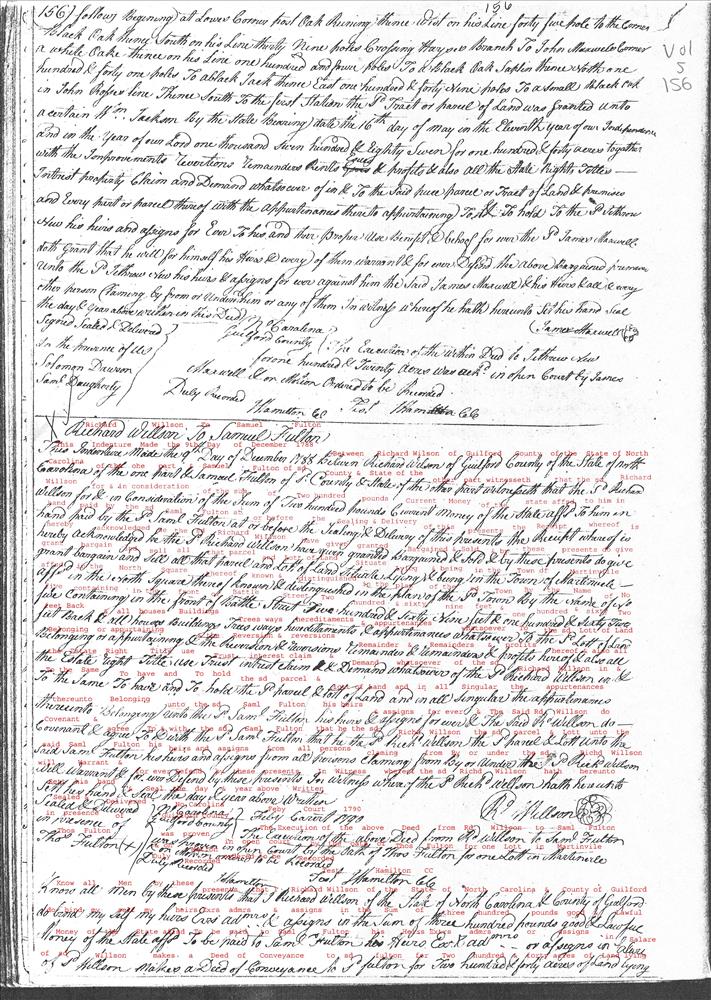 156
(156) follows Begining) at Lowes Corner post Oak Runing thence West on his Line forty five pole to the Corner
Black Oak thence South on his Line thirty Nine poles Crossing Haysse Branch To John Maxwels Corner
a white Oake thence on his Line one hundred and four poles To a Black Oak Saplin thence North one
hundred & forty one poles To a black Jack thence East one hundred & forty Nine poles To a Small Black Oak
in John Rosses line Thence South To the first Station the Sd Tract or parcel of Land was Granted unto
a certain Wm Jackson by the State Bearing) date the 16th day of may in the Eleventh year of our Independence
and in the year of our Lord one thousand Seven hundred & Eighty Seven for one hundred & forty acres together
with the Improvements Revertions Remainders Rents & profits & also all the State Right Title
Interest property Claim and Demand whatsoever of in & To the Said piece parcel or Tract of Land & premises
and Every part or parcel thereof with the Appurtenances thereto appurtaining) To & To hold To the Sd Jethrow
New his heirs and assigns for Ever To his and their Proper Use Benefit & behoof for ever the Sd James Maxwell
doth Grant that he will for himself his Heirs & every) of them warrant & for ever Defend the above Bargained premises
Unto the Sd Jethrow New his heirs & assigns for ever against him the Said James Maxwell & his Heirs & all & every
other person Claiming by from or Under him or any of them In witness whereof he hath hereunto Set his hand Seal
the day & year above within in this Deed
Signed Sealed & Delivered
In the presence of Us
Solomon Dawson
Saml Daugherty
James Maxwell
N Carolina
Guilford County
The Execution of the within Deed to Jethrow New
for one hundred & Twenty Acres was ackd in open Court by James
Maxwell & on Motion Ordered to be Recorded
Duly Recorded
Hamilton CC
Test Hamilton CC
Vol
5
156
X
Richard Willson To Samuel Fulton
This Indenture Made the 9th Day of December 1788 Between Richard Wilson of Guilford County of the State of North
Carolina of the one part & Samuel Fulton of sd County & State of the other part witnesseth that the sd Richard
Willson for & in Consideration of the Sum of Two hundred pounds Current Money of the State affd To him in
hand paid by the sd Saml Fulton at or before the Sealing & Delivery of this presents the Receipt whereof is
hereby acknowledged he the sd Richard Willson have given granted Bargained & Sold & by these presents do give
grant bargain and Sell all that parcel and Lot of Land Situate lying & being in the Town of Martinvile
affd in the North Square thereof known & distinguished in the plan of the sd Town by the Name of No
five Containing in the front of Battle Street two hundred & sixty nine feet & one hundred & Sixty Two
feet Back & all houses Buildings Trees ways hereditaments & appurtinances whatsoever To the sd Lott of Land
Belonging or appurtaining & the Reversion & reversions Remainder Remainders & profits thereof & also all
the Estate Right Title use Trust interest claim & Demand whatsoever of the sd Richard Willson in &
To the Same To have and To hold the sd parcel & Lot of Land and in all Singular the appurtenances
thereunto Belonging unto the sd Saml Fulton his heirs & assigns for ever & The Said Rd Willson do
Covenant & agree To & with the sd Saml Fulton that he the sd Richd Willson the sd parcel & Lott unto the
said Saml Fulton his heirs and assigns from all persons claiming from By or under the sd Richd Willson
Will Warrant & for ever defend by these presents In Witness whereof the sd Richd Willson hath hereunto
Set his hand & Seal the day & year above Written
Sealed & Delivered
in presence of
Thos Fulton (+)
Rd Willson
N Carolina
Guilford County
Feby Court 1790
The Execution of the above Deed from Rd Willson to Saml Fulton
was proven in open Court by the Oath of Thos Fulton for one Lott in Martinvile
Duly Recorded
Hamilton Test Hamilton CC
Know all Men by these presents that I Richard Willson of the State of North Carolina & County of Guilford
do bind my Self my heirs Exrs admrs & assigns in the Sum of three hundred pounds good & Lawful
Money of the State affd To be paid to Saml Fulton his Heirs
of sd Willson makes a Deed of Conveyance to sd fulton for Two hundred & forty acres of Land lying